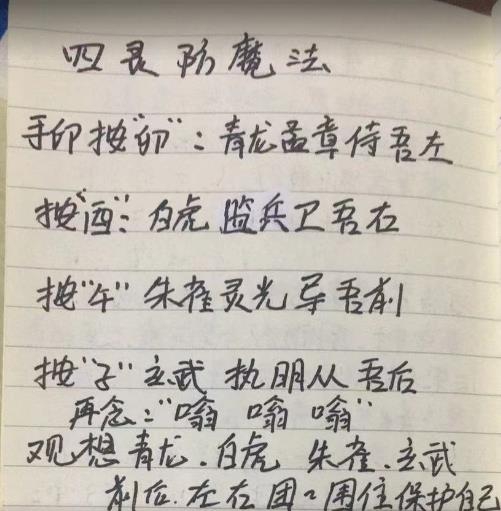 四灵防魔法
手印按"卯"：青龙孟章侍吾左
按"酉"：白虎监兵卫吾右
按"午"朱雀灵光导吾前
按"子"玄武执明从吾后
再念："嗡 嗡 嗡"
观想青龙.白虎 朱雀.玄武
前后.左右团团围住保护自己